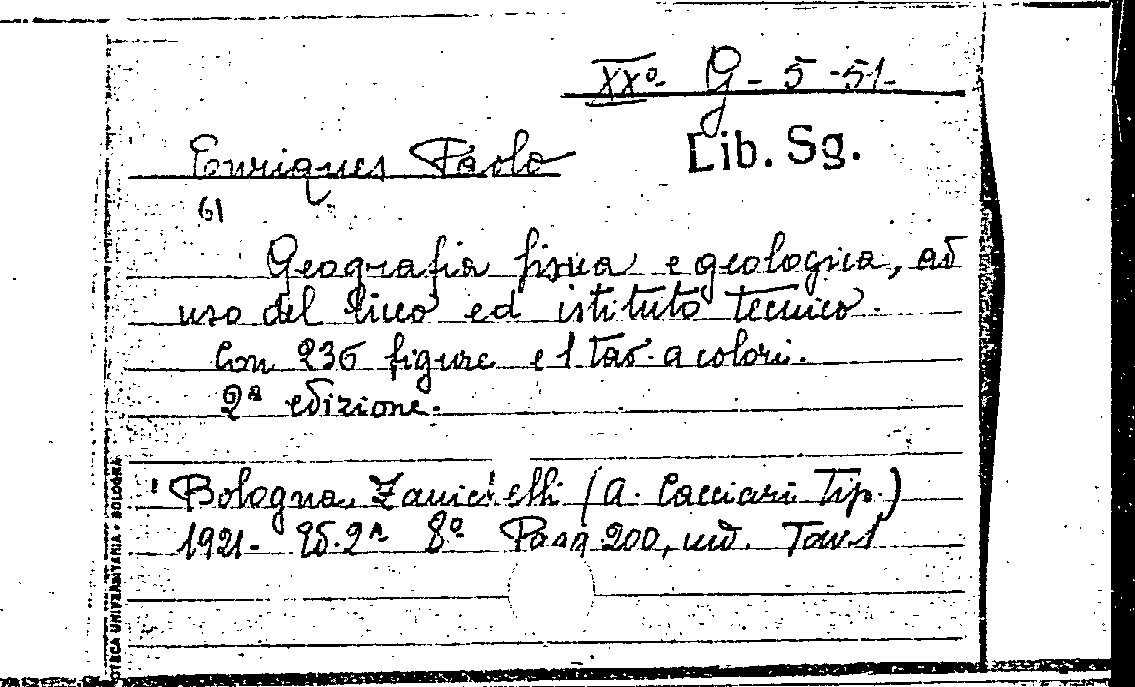 XXº- G - 5 - 51-
Lib. Sg.
Enriques Paolo
61
Geografia fisica e geologica, ad
uso del liceo ed istituto tecnico.
Con 236 figure e 1 tav. a colori.
2ª edizione.-
Bologna, Zanichelli (A. Cacciari Tip.)
1921- Ed. 2ª 8º Pagg 200, ind. Tav. 1
OTECA UNIVERSITARIA • BOLOGNA